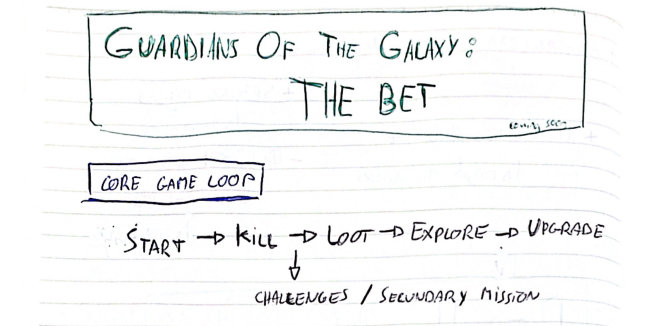 GUARDIANS OF THE GALAXY:
THE BET
coming soon
CORE GAME LOOP
START → KILL → LOOT → EXPLORE → UPGRADE
CHALLENGES / SECUNDARY MISSION